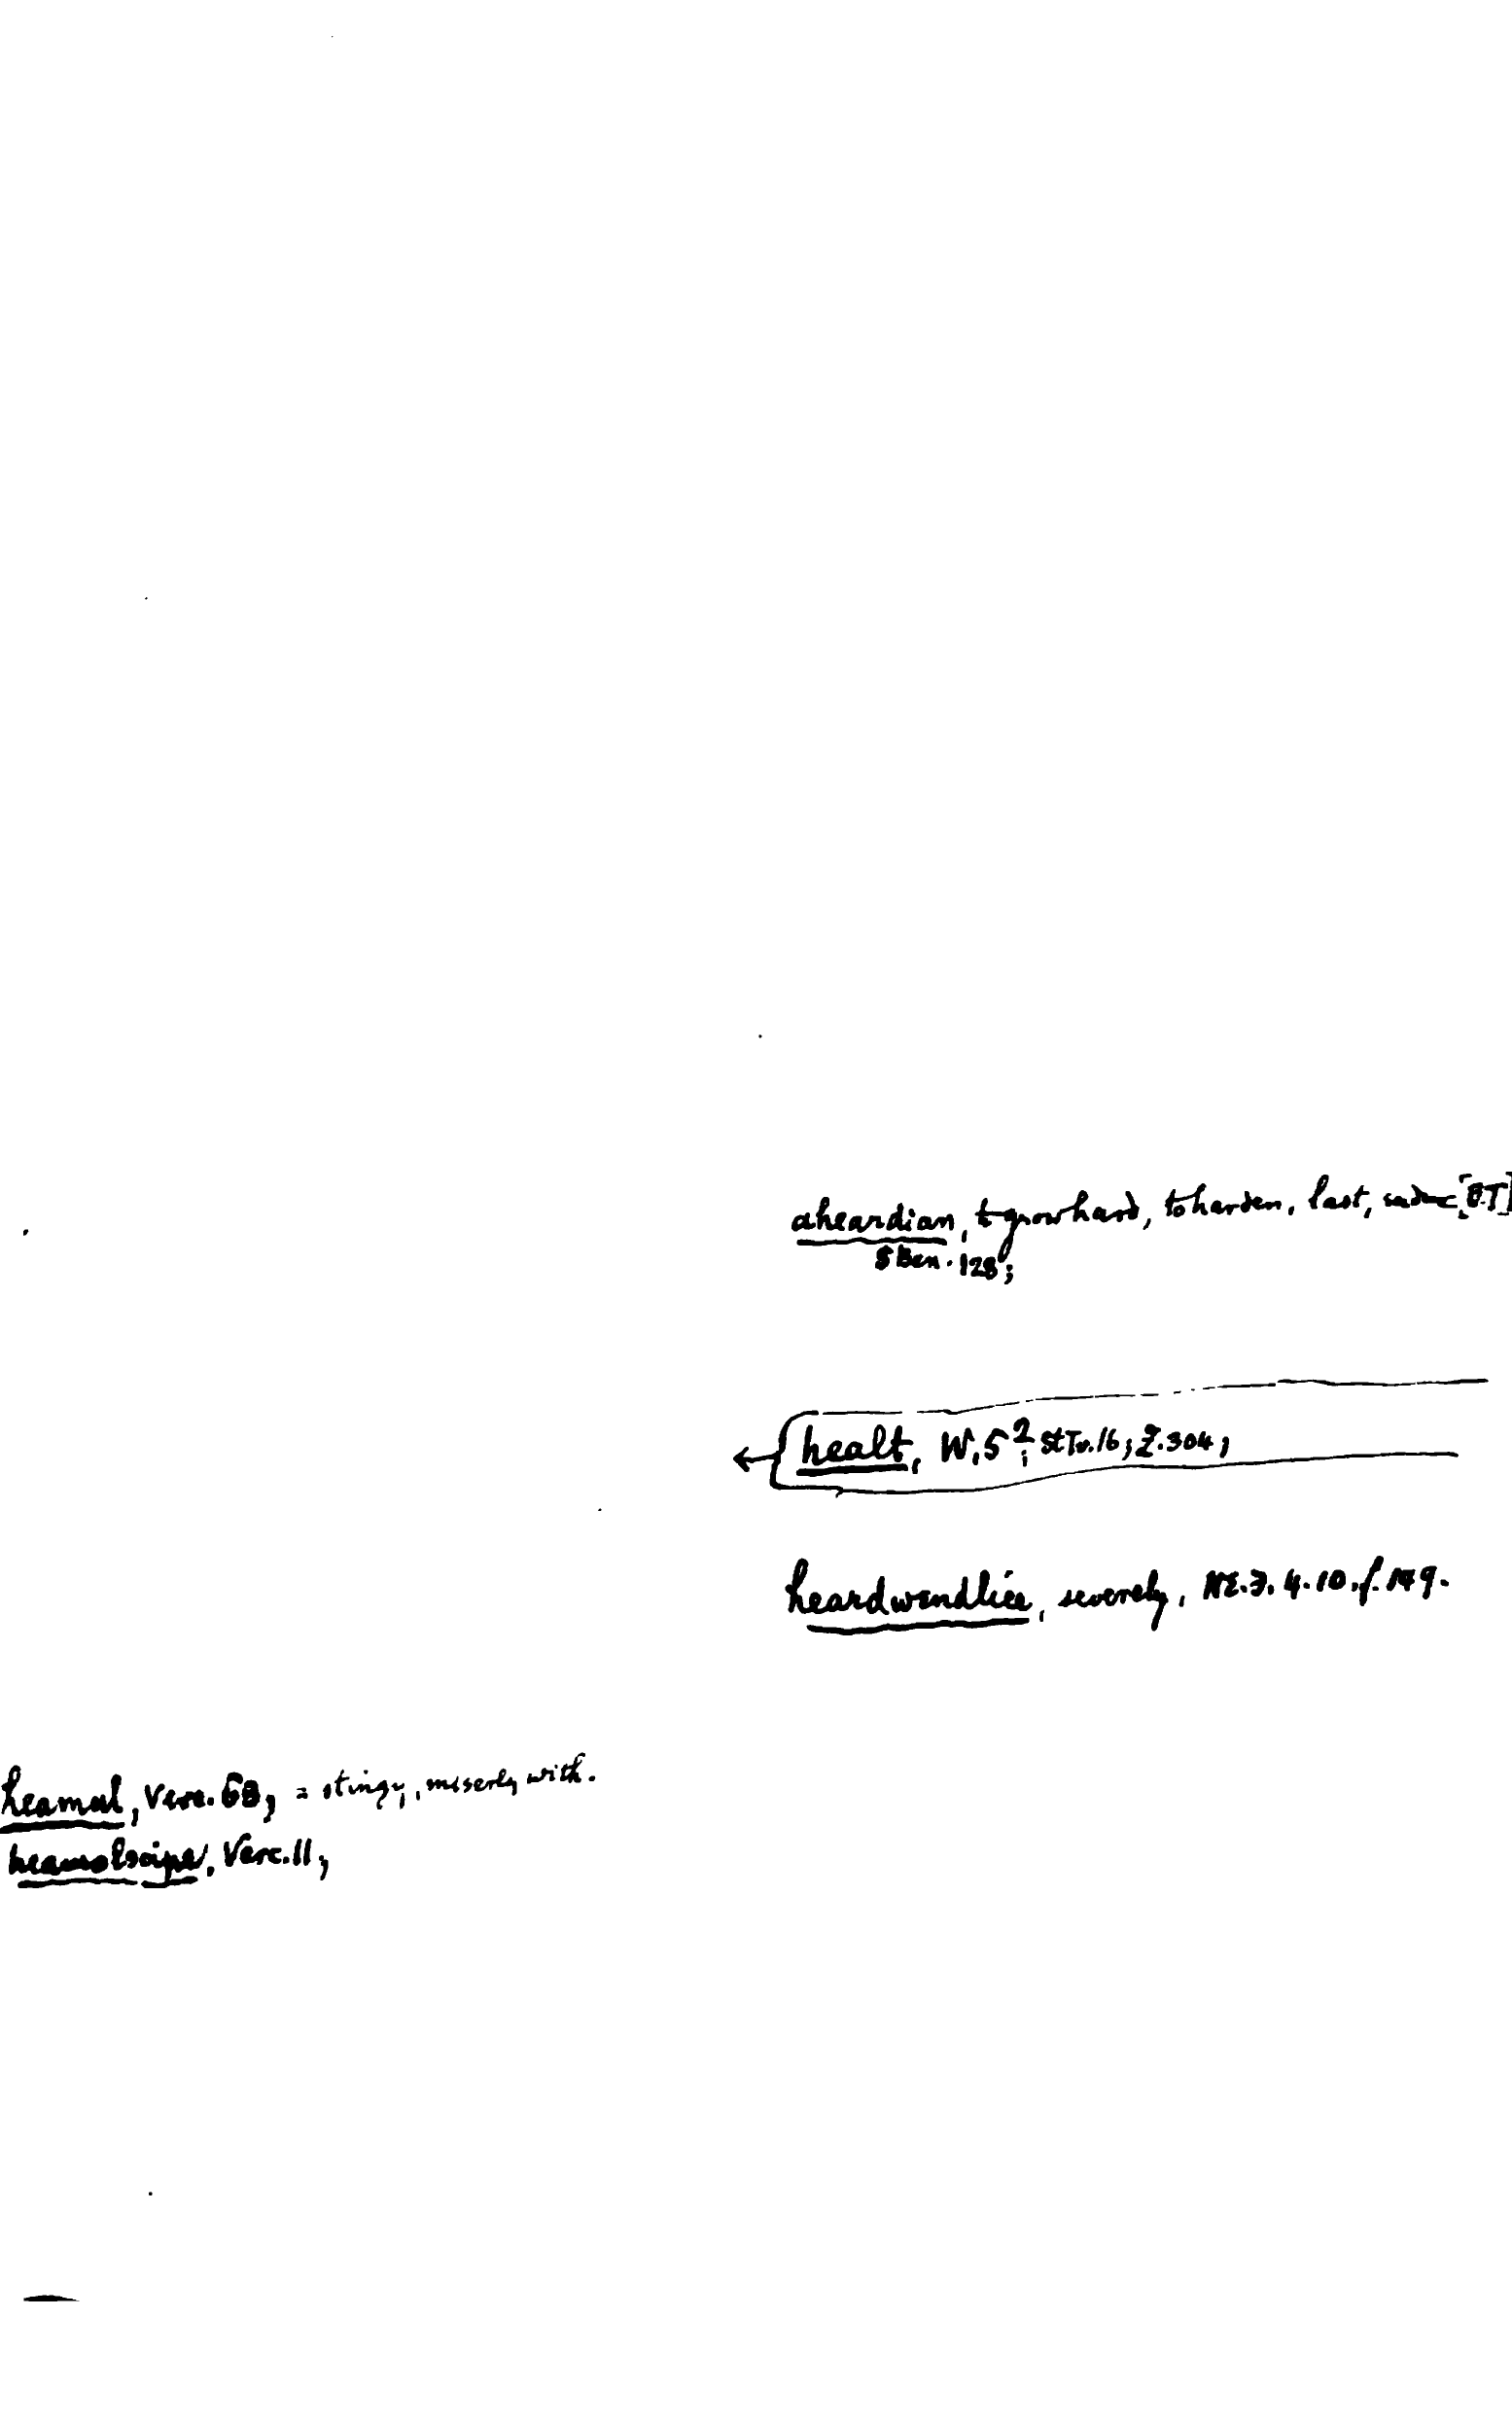 aheardian, to grow hard, to harden, last, endure [B.T]
S Ben. 128;
healt, W. 5²; St Tv. 16; Z. 304;
heardwendlice, severely, NE. 3. 4. 10. f. 149.
heamul, Verc. 68; = stingy, miserly with.
heamolscipe, Verc. 11;